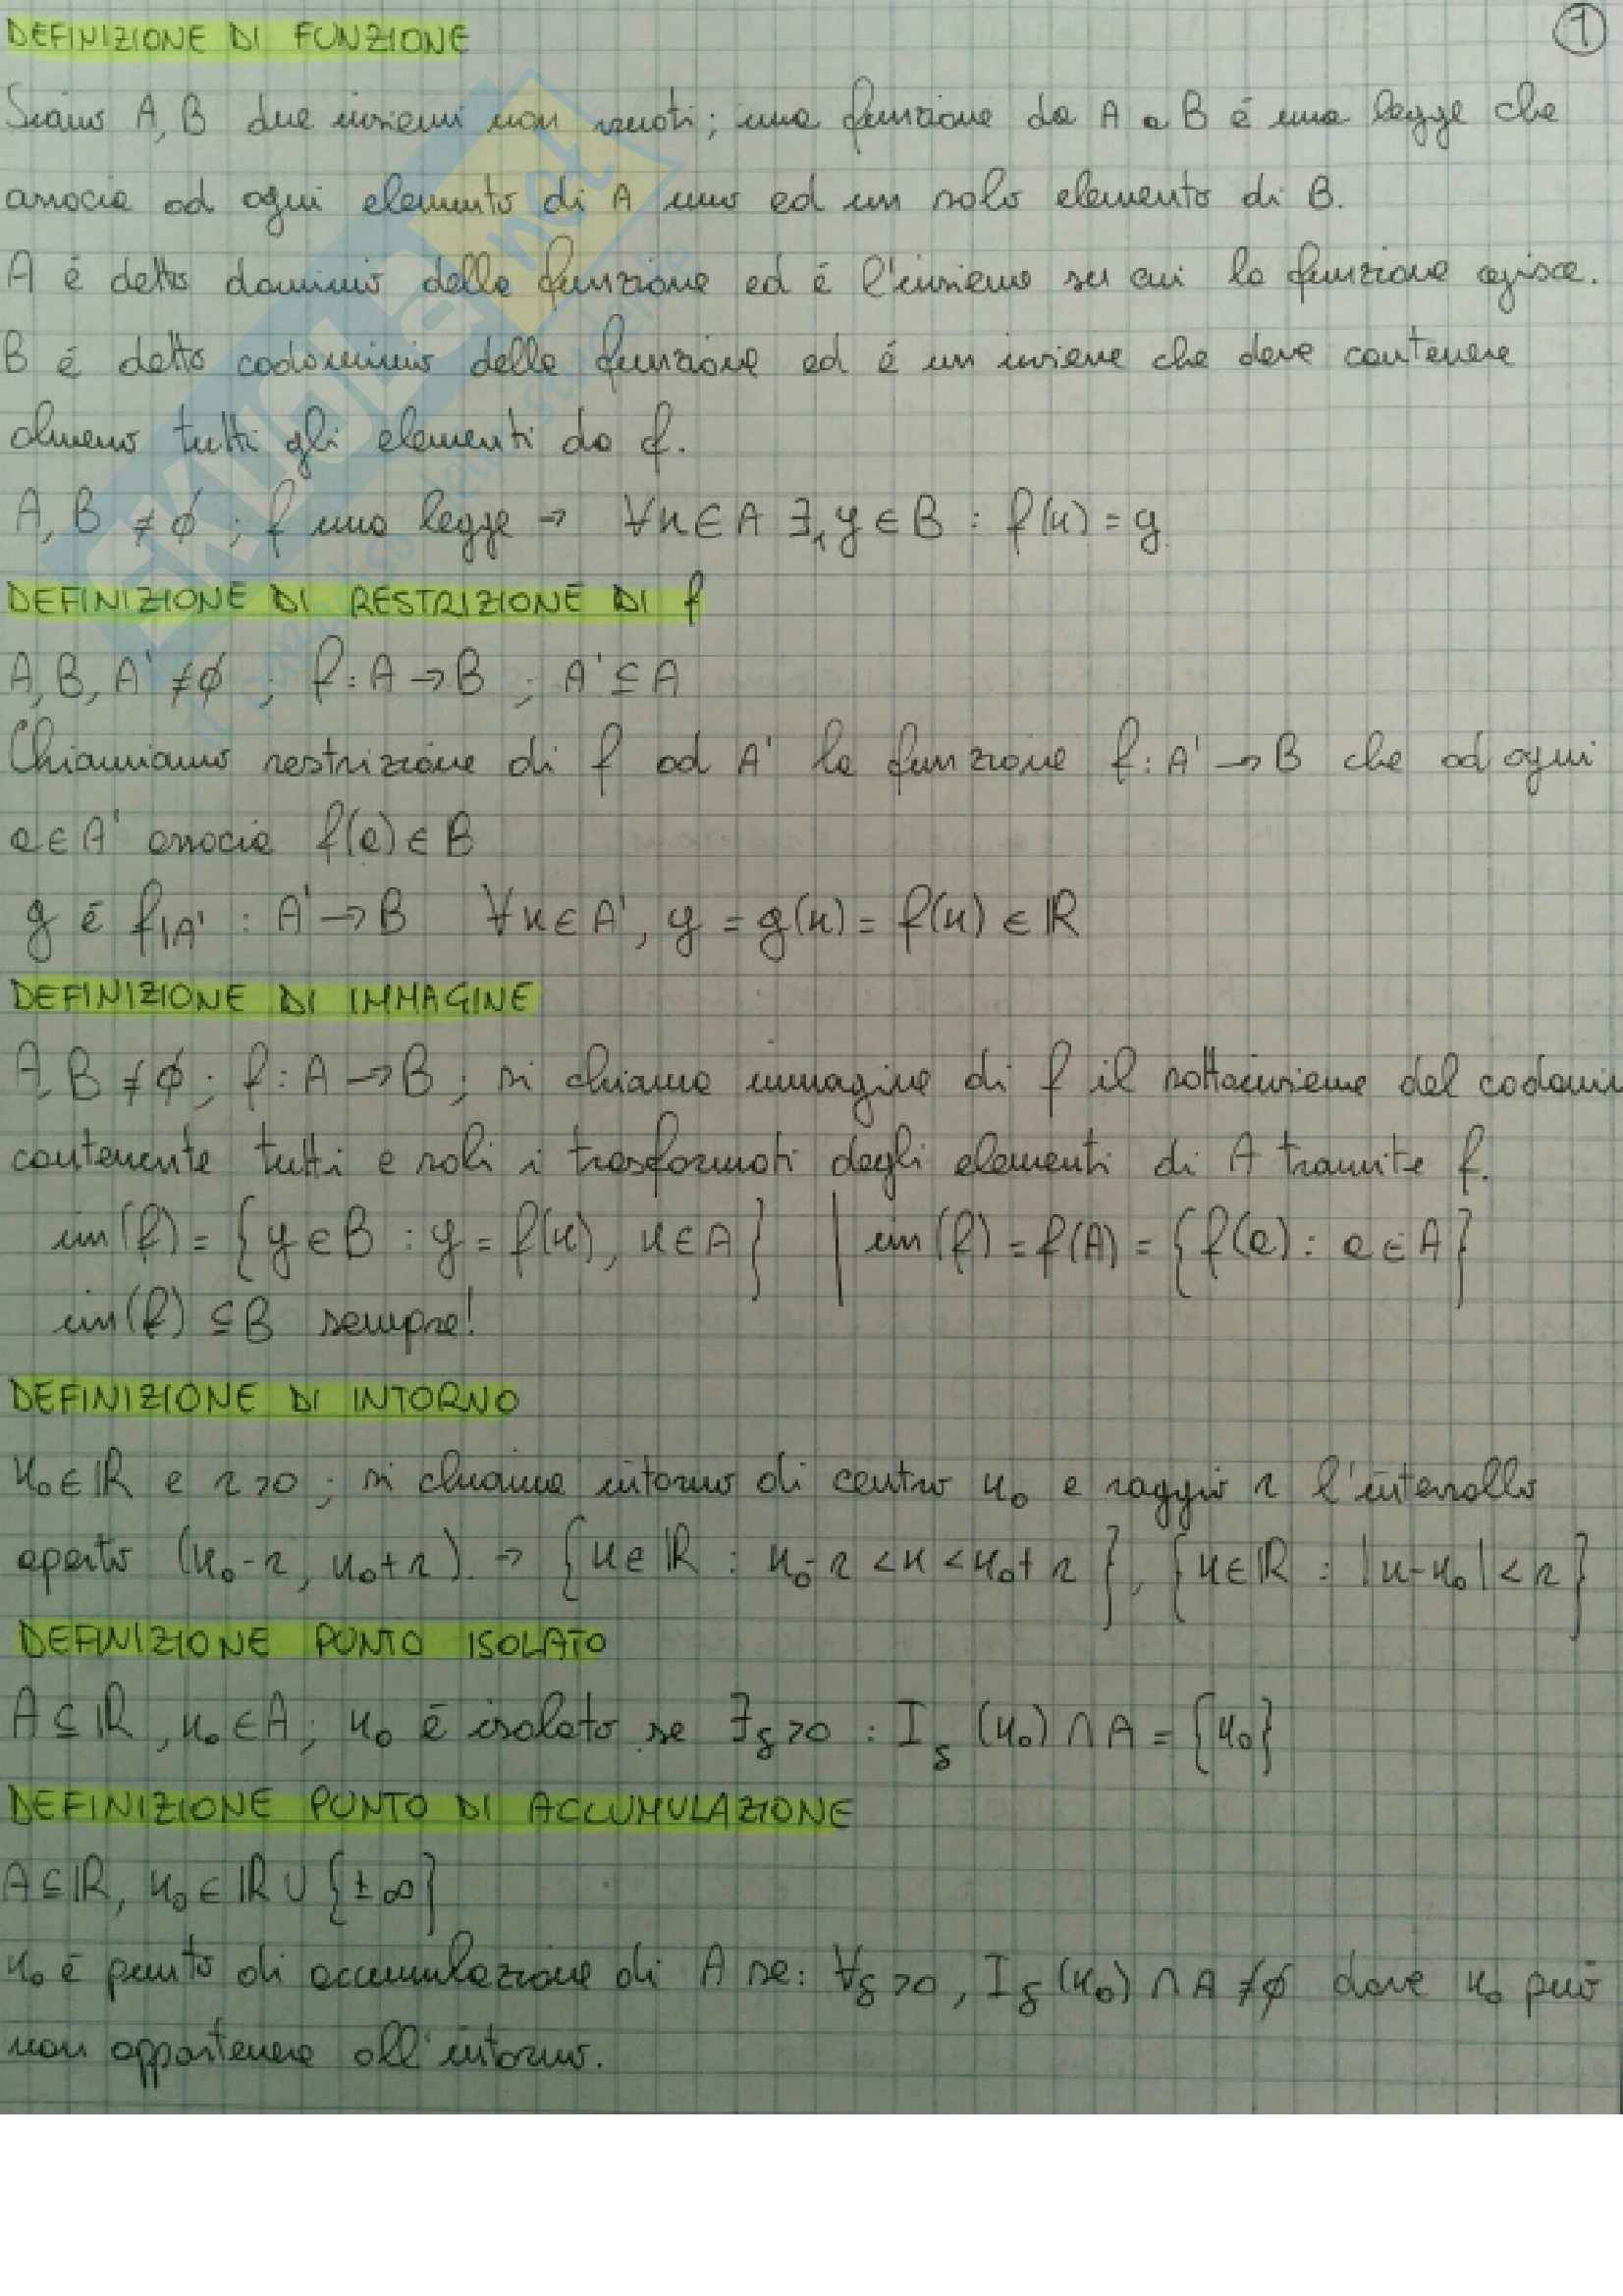 DEFINIZIONE DI FUNZIONE
1
Siano A, B due insiemi non vuoti; una funzione da A a B é una legge che
associa ad ogni elemento di A uno ed un solo elemento di B.
A é detto dominio della funzione ed é l'insieme su cui la funzione agisce.
B é detto codominio della funzione ed é un insieme che deve contenere
almeno tutti gli elementi da f.
A, B ≠ ∅ ; f una legge → ∀x∈A ∃₁ y∈B : f(x) = y
DEFINIZIONE DI RESTRIZIONE DI f
A, B, A' ≠ ∅ ; f: A → B ; A' ⊆ A
Chiamiamo restrizione di f ad A' la funzione f: A' → B che ad ogni
a∈A' associa f(a)∈B
g é f|A' : A' → B ∀x∈A', y = g(x) = f(x) ∈ ℝ
DEFINIZIONE DI IMMAGINE
A, B ≠ ∅ ; f: A → B ; si chiama immagine di f il sottoinsieme del codomi
contenente tutti e soli i trasformati degli elementi di A tramite f.
im(f) = {y∈B : y = f(x), x∈A} | im(f) = f(A) = {f(a) : a∈A}
im(f) ⊆ B sempre!
DEFINIZIONE DI INTORNO
x₀∈ℝ e r>0 ; si chiama intorno di centro x₀ e raggio r l'intervallo
aperto (x₀-r, x₀+r). → {x∈ℝ : x₀-r < x < x₀+r}, {x∈ℝ : |x-x₀| < r}
DEFINIZIONE PUNTO ISOLATO
A⊆ℝ, x₀∈A; x₀ é isolato se ∃δ>0 : Iδ(x₀) ∩ A = {x₀}
DEFINIZIONE PUNTO DI ACCUMULAZIONE
A⊆ℝ, x₀∈ℝ∪{±∞}
x₀ é punto di accumulazione di A se: ∀δ>0, Iδ(x₀) ∩ A ≠ ∅ dove x₀ può
non appartenere all'intorno.
SKUOLA.net